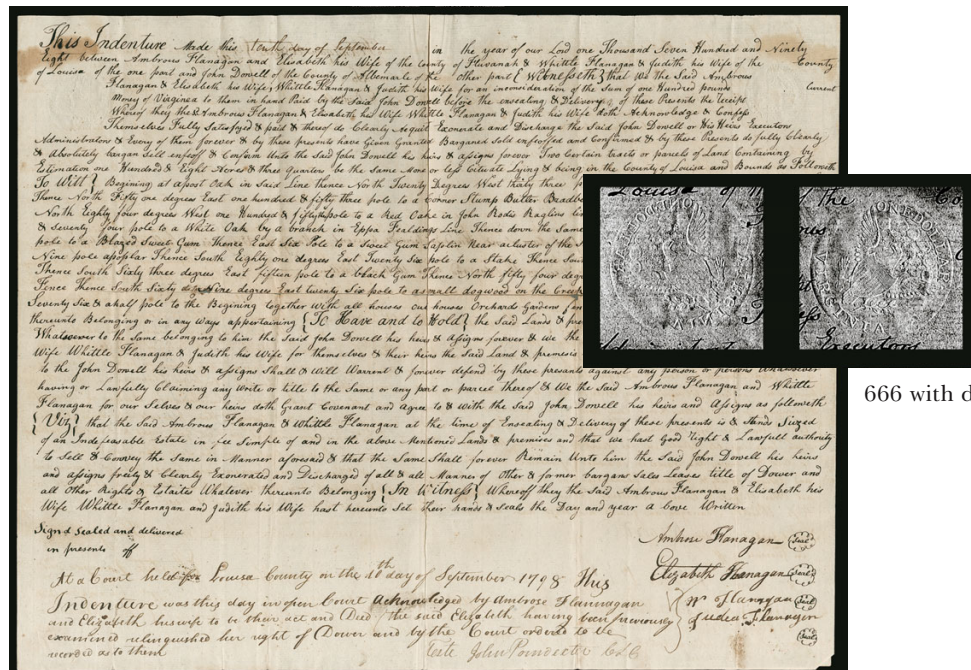 This Indenture Made this tenth day of September in the year of our Lord one Thousand Seven Hundred and Ninety
Eight between Ambrous Flanagan and Elisabeth his Wife of the County of Fluvanah & Whittle Flanagan & Judith his Wife of the County
of Louisa of the one part and John Dowell of the County of Albemarle of the other part { Witnesseth } that we the Said Ambrous
Flanagan & Elisabeth his Wife & Whittle Flanagan & Judith his Wife for an inconsideration of the Sum of one Hundred pounds Current
Money of Virginea to them in hand Paid by the Said John Dowell before the ensealing & Delivery of these Presents the Receipt
Whereof they the Ambrous Flanagan & Elisabeth his Wife Whittle Flanagan & Judith his Wife doth Acknowledge & Confess
Themselves Fully Satisfyed & paid & thereof do Clearly Acquit Exonerate and Discharge the Said John Dowell or His Heirs Executors
Administrators & Every of them forever & by these presents have Given Granted Bargand Sold enfeoffed and Confirmed & by these Presents do fully Clearly
& Absolutely bargan Sell enfeoff & Confirm Unto the Said John Dowell his heirs & assigns forever Two Certain tracts or parcels of Land Containing by
Estimation one Hundred & Eight Acres & three Quarters be the Same more or less Cituate Lying & being in the County of Louisa and Bounds as Followeth
To Witt } Begining at apost Oak in Said Line thence North Twenty Degrees West thirty three
Thence North Fifty one degrees East one hundred & fifty three pole to a Corner Stump Butler
North Eighty four degrees West one Hundred & fifty pole to a Red Oake in John Rodes
& Seventy four pole to a White Oak by a branch in Line Thence down the Same
pole to a Blazed Sweet Gum Thence East Six Pole to a Sweet Gum Saplin Near acluster of the
Nine pole apoplar Thence South Eighty one degrees East Twenty Six pole to a Stake Thence
Thence South Sixty three degrees East fifteen pole to a black Gum Thence North fifty four
Fence Thence South Sixty degrees East twenty Six pole to asmall dogwood on the
Seventy Six & ahalf pole to the Begining together with all houses out houses Orchards Gardens
thereunto Belonging or in any Ways appertaining { To Have and to Hold } the Said Lands &
Whatsoever to the Same belonging to him the Said John Dowell his heirs & Assigns forever & we the
Wife Whittle Flanagan & Judith his Wife for themselves & their heirs the Said Land & premises
to the John Dowell his heirs & assigns Shall & will Warrent & forever defend by these presants against any person or persons Whatsoever
having or Lawfully Claiming any Write or title to the Same or any part or parcel thereof & We the Said Ambrous Flanagan and Whittle
Flanagan for our Selves & our heirs doth Grant Covenant and Agree to & with the Said John Dowell his heirs and Assigns as followeth
{ Viz } that the Said Ambrous Flanagan & Whittle Flanagan at the time of Ensealing & Delivery of these presents is & Stands Siezed
of an Indefeasable Estate in fee Simple of and in the above Mentioned Lands & premises and that we hast Good Right & Lawfull authority
to Sell & Convey the Same in Manner aforesed & that the Same Shall forever Remain Unto him the Said John Dowell his heirs
and assigns freely & Clearly Exonerated and Discharged of all & all Manner of Other & former bargans Sales Leases title of Dower and
all Other Rights & Estaites Whatever thereunto Belonging { In Witness } Whereoff they the Said Ambrous Flanagan & Elisabeth his
Wife Whittle Flanagan and Judith his Wife hast hereunto Set Their hands & Seals the Day and year a bove Written
Signd Sealed and delivered
in presents off
Ambrose Flanagan Seal
Elizabeth Flanagan Seal
W Flanagan Seal
Judea Flanagan Seal
At a Court held for Louisa County on the 10th day of September 1798 This
Indenture was this day in open Court Acknowledged by Ambrose Flannagan
and Elizabeth his wife to be their act and Deed, the said Elizabeth having been previously
examined relinquished her right of Dower and by the Court ordered to be
recorded as to them
Teste John Poindexter
Louisa of
the Co
Executors
666 with d